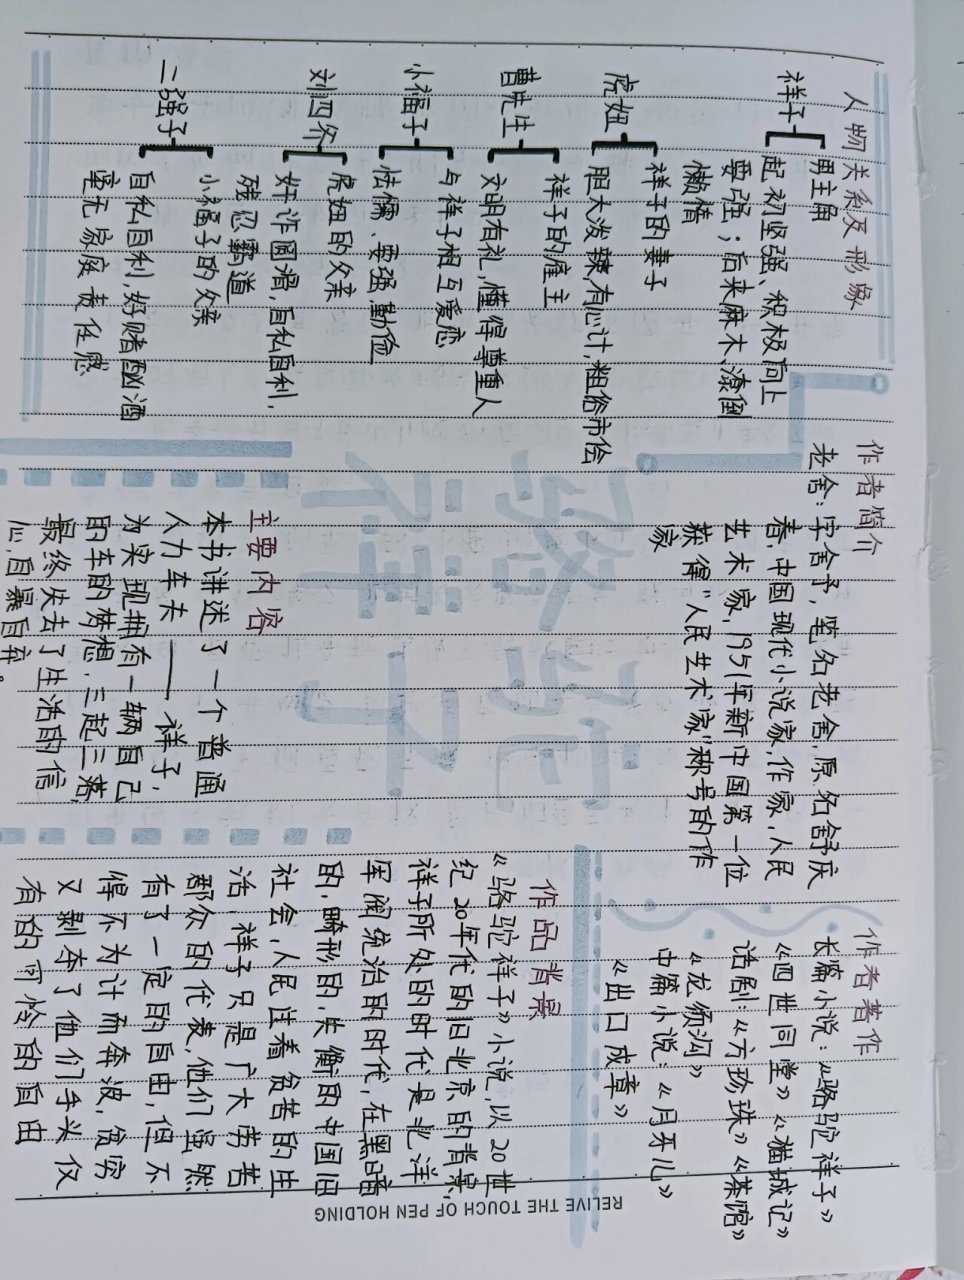 人物关系及形象
祥子
男主角
起初坚强、积极向上
要强；后来麻木、潦倒
懒惰
虎妞
祥子的妻子
胆大泼辣,有心计,粗俗市侩
曹先生
祥子的雇主
文明有礼,懂得尊重人
小福子
与祥子相互爱恋
怯懦、要强,勤俭
刘四爷
虎妞的父亲
奸诈圆滑,自私自利,
残忍霸道
二强子
小福子的父亲
自私自利,好赌酗酒
毫无家庭责任感
作者简介
老舍：字舍予，笔名老舍,原名舒庆
春,中国现代小说家,作家,人民
艺术家,1951年新中国第一位
获得“人民艺术家”称号的作
家
作者著作
长篇小说：《骆驼祥子》
《四世同堂》《猫城记》
话剧：《方珍珠》《茶馆》
《龙须沟》
中篇小说：《月牙儿》
《出口成章》
骆驼
祥子
主要内容
本书讲述了一个普通
人力车夫——祥子,
为实现拥有一辆自己
的车的梦想,三起三落,
最终失去了生活的信
心,自暴自弃。
作品背景
《骆驼祥子》小说,以20世
纪20年代的旧北京的背景,
祥子所处的时代是北洋
军阀统治的时代,在黑暗
的,畸形的,失衡的中国旧
社会,人民过着贫苦的生
活,祥子只是广大劳苦
群众的代表,他们虽然
有了一定的自由,但不
得不为计而奔波,贫穷
又剥夺了他们手头仅
有的可怜的自由
RELIVE THE TOUCH OF PEN HOLDING